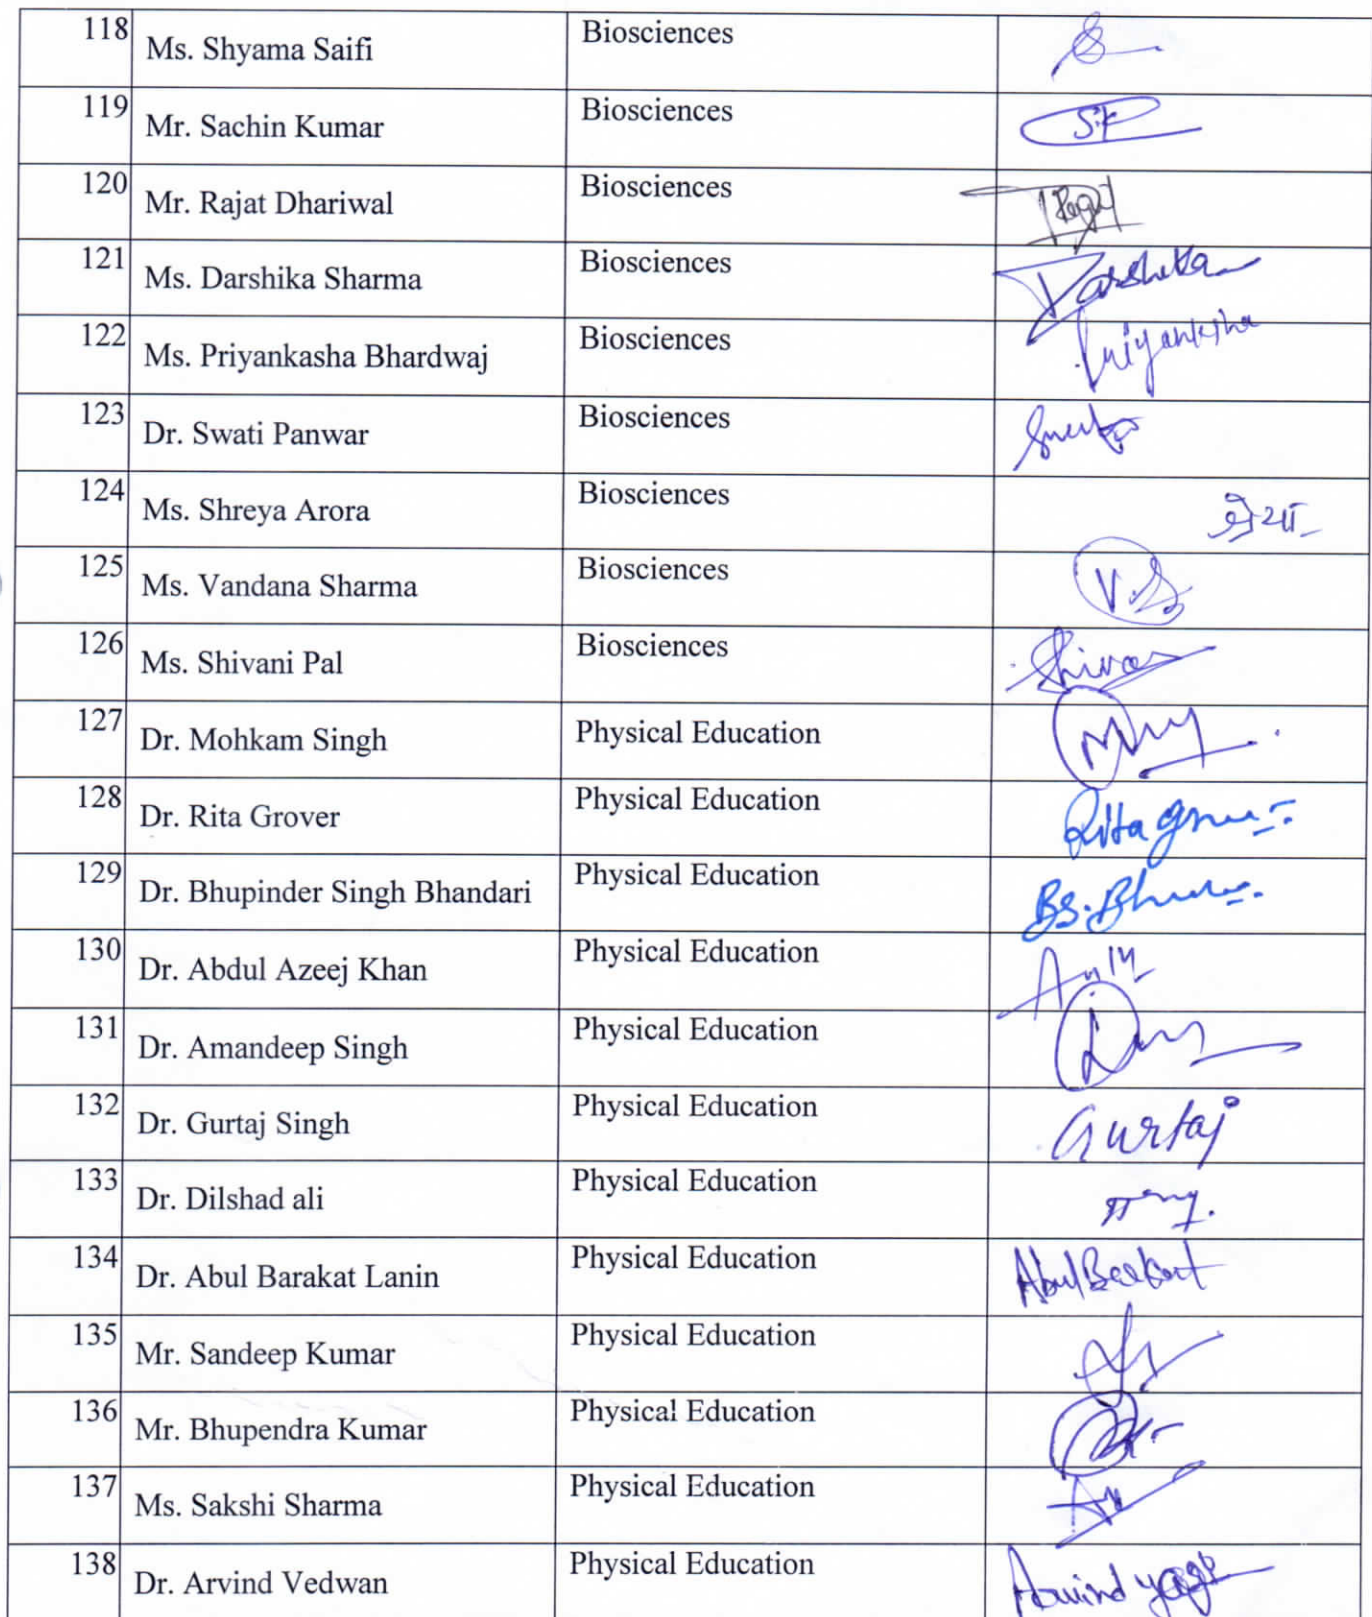 118 Ms. Shyama Saifi Biosciences
119 Mr. Sachin Kumar Biosciences
120 Mr. Rajat Dhariwal Biosciences
121 Ms. Darshika Sharma Biosciences Darshika
122 Ms. Priyankasha Bhardwaj Biosciences Priyanksha
123 Dr. Swati Panwar Biosciences
124 Ms. Shreya Arora Biosciences श्रेया
125 Ms. Vandana Sharma Biosciences V.S
126 Ms. Shivani Pal Biosciences
127 Dr. Mohkam Singh Physical Education
128 Dr. Rita Grover Physical Education Rita
129 Dr. Bhupinder Singh Bhandari Physical Education
130 Dr. Abdul Azeej Khan Physical Education
131 Dr. Amandeep Singh Physical Education
132 Dr. Gurtaj Singh Physical Education Gurtaj
133 Dr. Dilshad ali Physical Education
134 Dr. Abul Barakat Lanin Physical Education Abul Barkat
135 Mr. Sandeep Kumar Physical Education
136 Mr. Bhupendra Kumar Physical Education
137 Ms. Sakshi Sharma Physical Education
138 Dr. Arvind Vedwan Physical Education